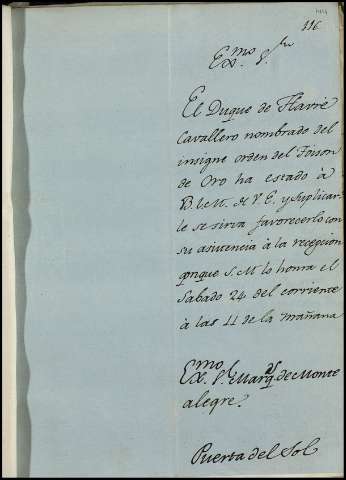 116
Exmo Sor
El Duque de Havré
Cavallero nombrado del
insigne orden del Toison
de Oro ha estado à
B.l.M. de V.E. y suplicar
le se sirva favorecerlo con
su asistencia à la recepcion
qonque S.M. lo honra el
Sabado 24 del corriente
à las 11 de la mañana
Exmo Sr Marqs de Monte
alegre.
Puerta del Sol